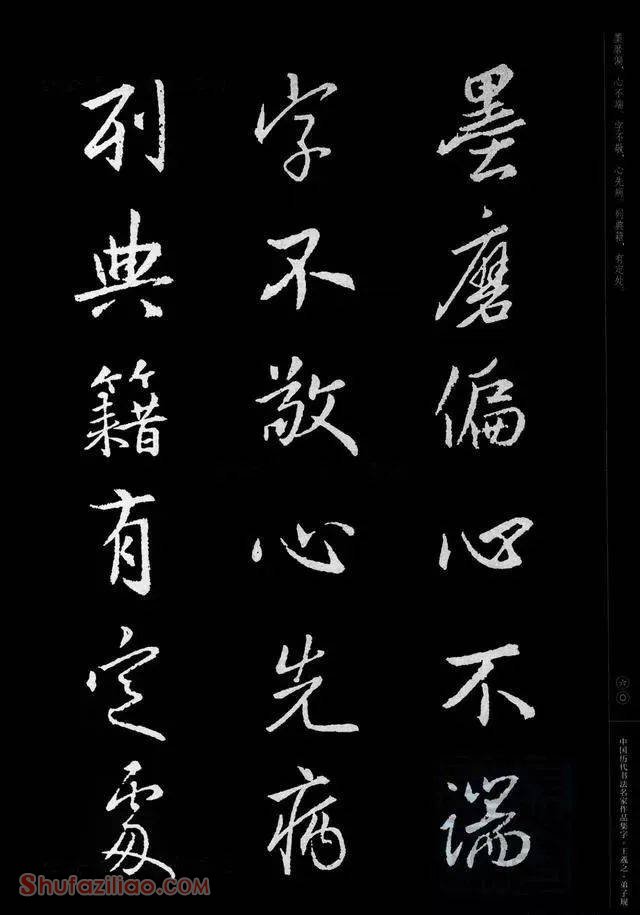 墨磨偏心不端
字不敬心先病
列典籍有定處
墨磨偏，心不端，字不敬，心先病。列典籍，有定处。
六〇
中国历代书法名家作品集字·王羲之·弟子规
Shufaziliao.com